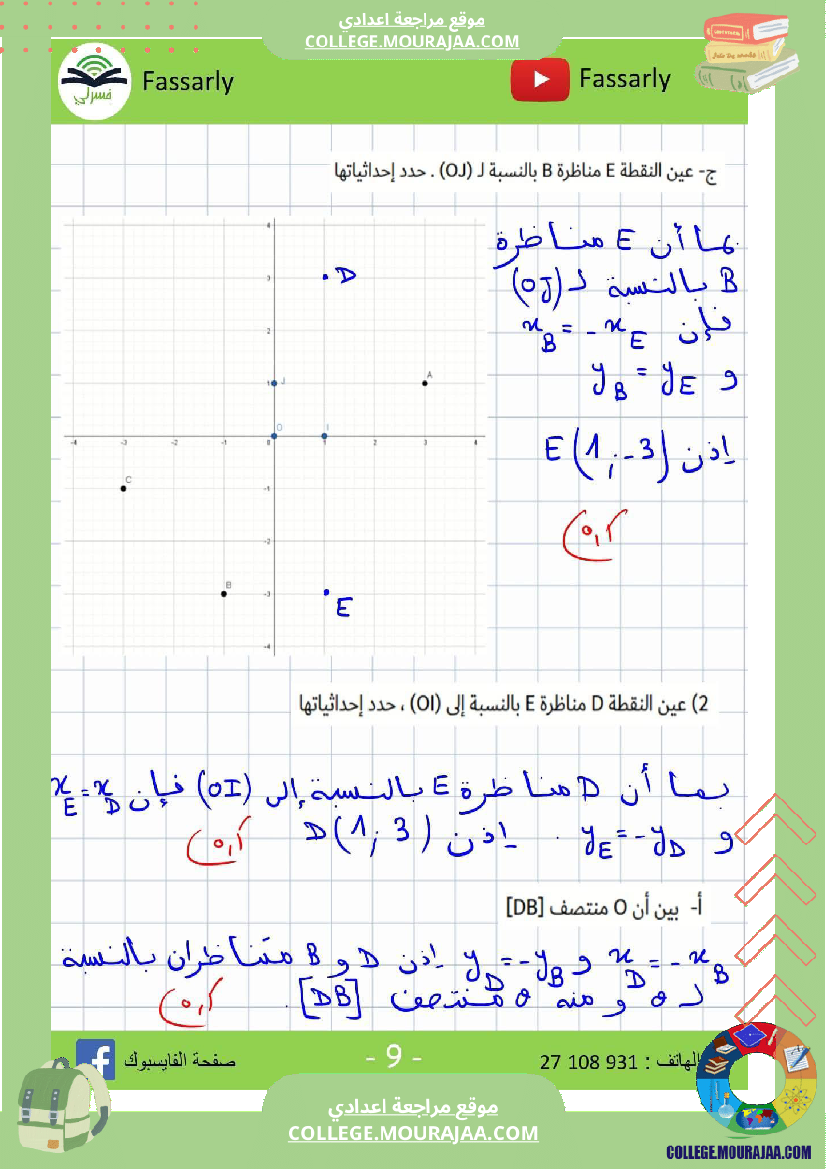 موقع مراجعة اعدادي
COLLEGE.MOURAJAA.COM
فسرلي
Fassarly
Fassarly
ج- عين النقطة E مناظرة B بالنسبة لـ (OJ) . حدد إحداثياتها
بما أن E مناظرة
B بالنسبة لـ (OJ)
فإن x_B = -x_E
و y_B = y_E
إذن E(1 ; -3)
4
3
2
1
-1
-2
-3
-4
-4 -3 -2 -1 0 1 2 3 4
D
J
A
O
I
C
B
E
2) عين النقطة D مناظرة E بالنسبة إلى (OI) ، حدد إحداثياتها
بما أن D مناظرة E بالنسبة إلى (OI) فإن x_E = x_D
و y_E = -y_D . إذن D(1 ; 3)
أ- بين أن O منتصف [DB]
x_D = -x_B و y_D = -y_B إذن D و B متناظران بالنسبة
لـ O و منه O منتصف [DB] .
صفحة الفايسبوك
- 9 -
الهاتف : 27 108 931
موقع مراجعة اعدادي
COLLEGE.MOURAJAA.COM
COLLEGE.MOURAJAA.COM